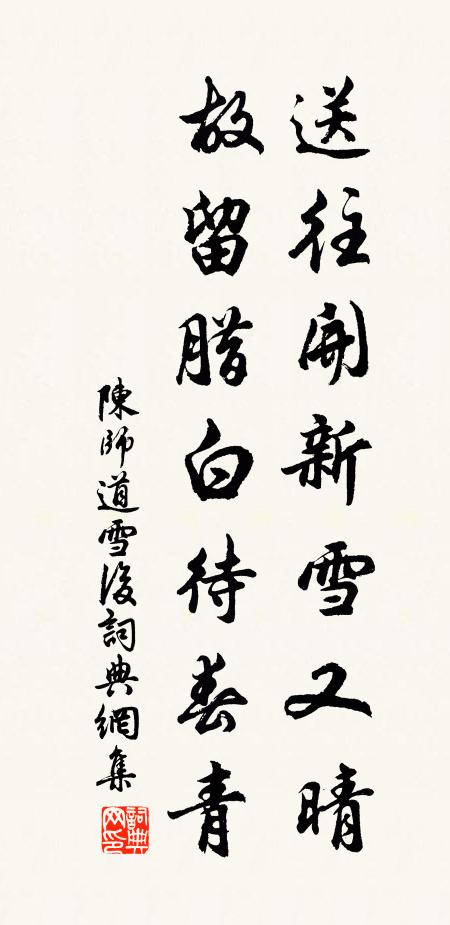 送往開新雪又晴
故留腊白待春青
陳師道雪後詞典網集
詞典网印